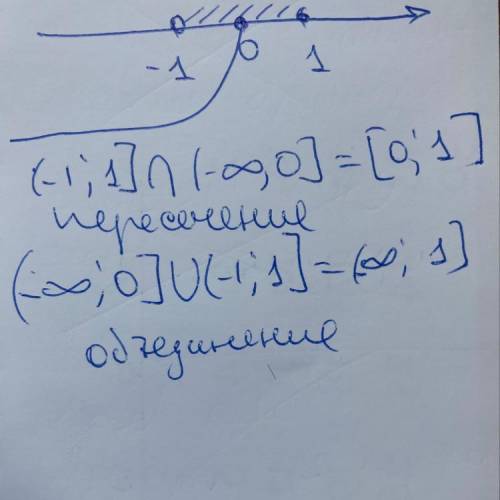 -1 0 1
(-1; 1] ∩ (-∞, 0] = [0; 1]
пересечение
(-∞; 0] ∪ (-1; 1] = (∞; 1]
объединение